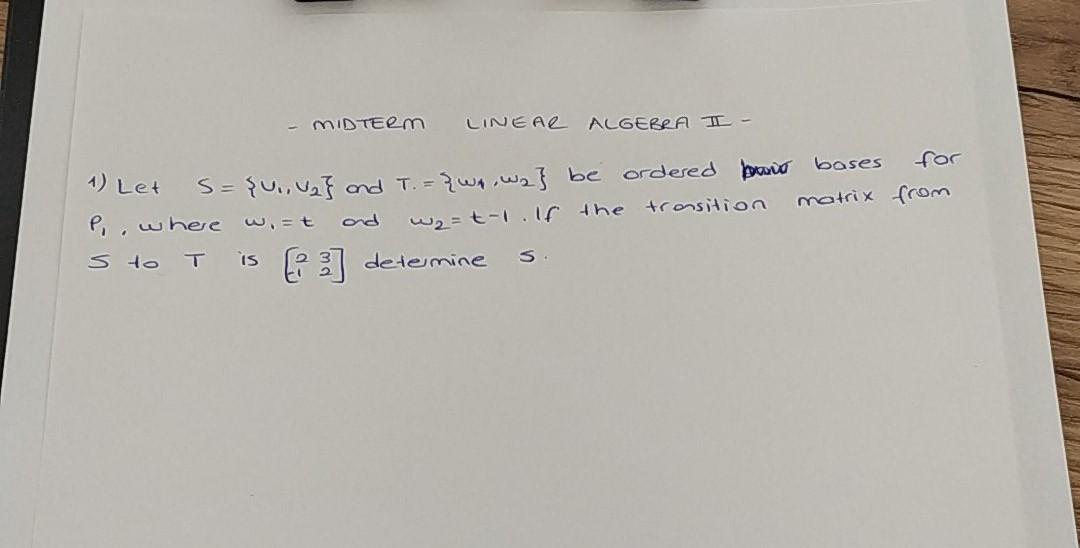 - MIDTERM LINEAR ALGEBRA II -
1) Let S = {V₁, V₂} and T. = {w₁, w₂} be ordered bases for
P₁, where w₁ = t and w₂ = t-1. If the transition matrix from
S to T is [2 3 -1 2] determine S.